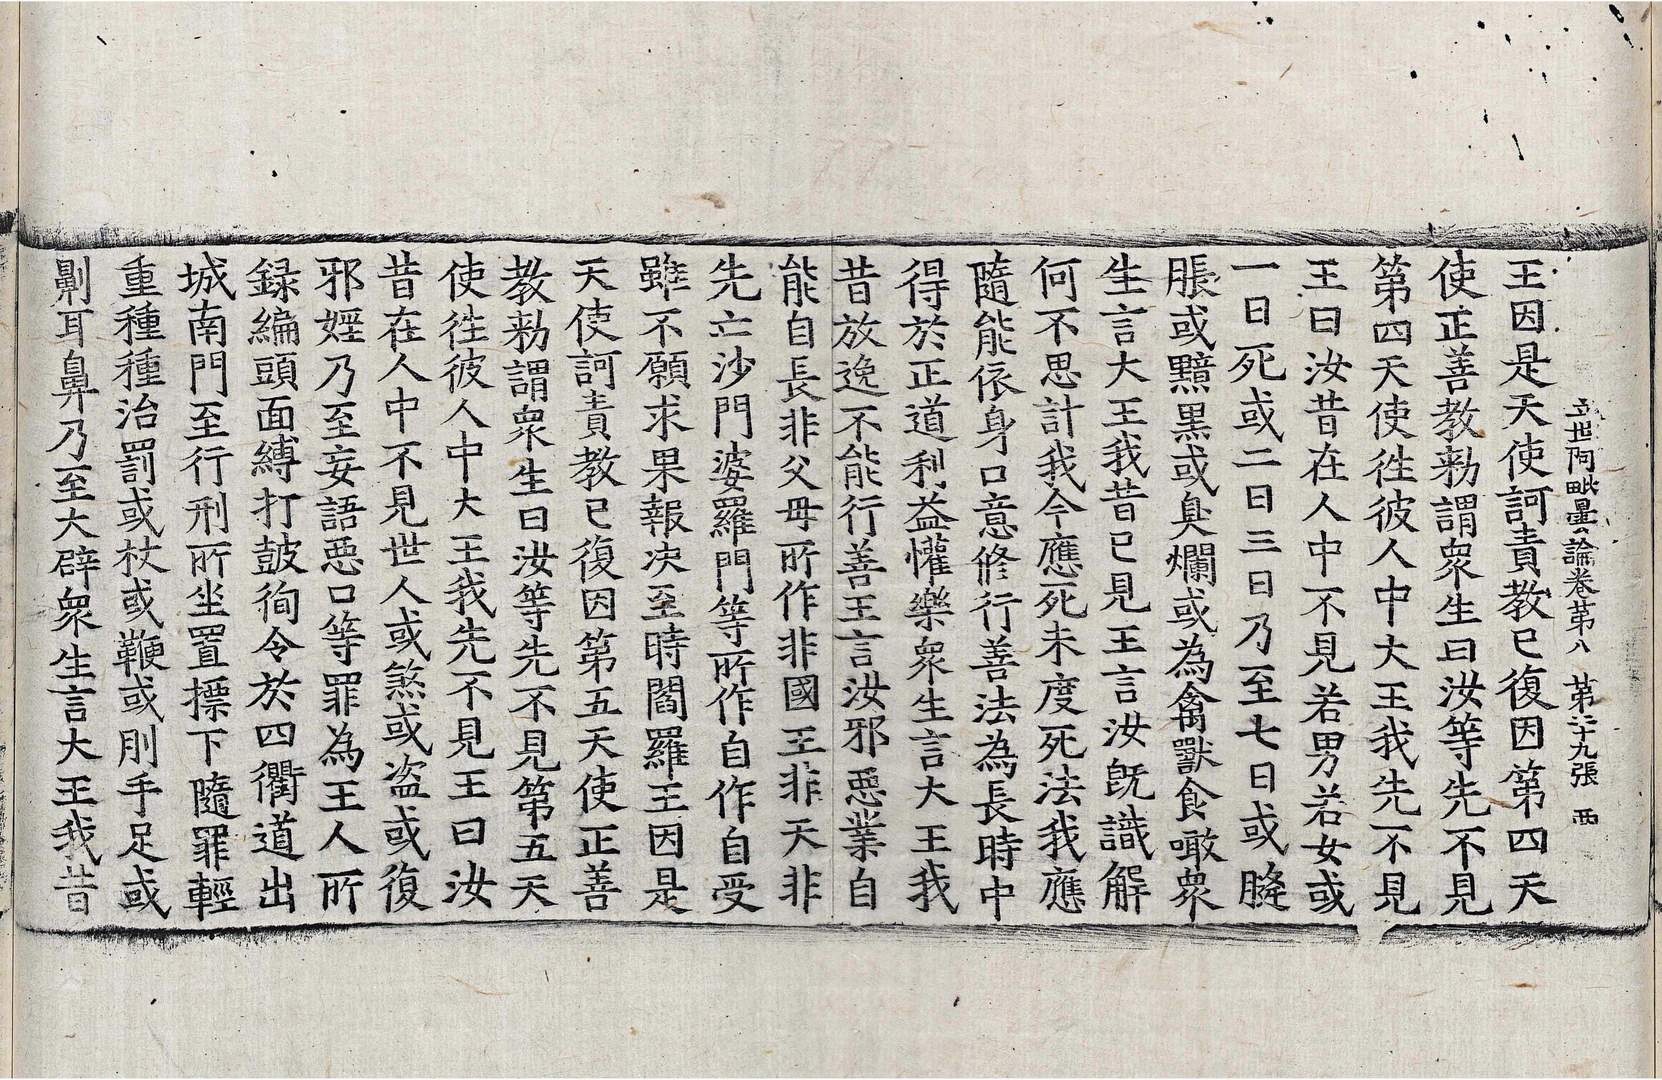 立世阿毗曇論卷第八 第二十九張 西
王因是天使訶責教已復因第四天
使正善教勑謂衆生曰汝等先不見
第四天使徃彼人中大王我先不見
王曰汝昔在人中不見若男若女或
一日死或二日三日乃至七日或膖
脹或黯黒或臭爛或為禽獸食噉衆
生言大王我昔已見王言汝旣識解
何不思計我今應死未度死法我應
隨能依身口意修行善法為長時中
得於正道利益懽樂衆生言大王我
昔放逸不能行善王言汝邪惡業自
能自長非父母所作非國王非天非
先亡沙門婆羅門等所作自作自受
雖不願求果報决至時閻羅王因是
天使訶責教已復因第五天使正善
教勑謂衆生曰汝等先不見第五天
使徃彼人中大王我先不見王曰汝
昔在人中不見世人或煞或盗或復
邪婬乃至妄語惡口等罪為王人所
録編頭面縛打鼓徇令於四衢道出
城南門至行刑所坐置摽下隨罪輕
重種種治罰或杖或鞭或刖手足或
劓耳鼻乃至大辟衆生言大王我昔